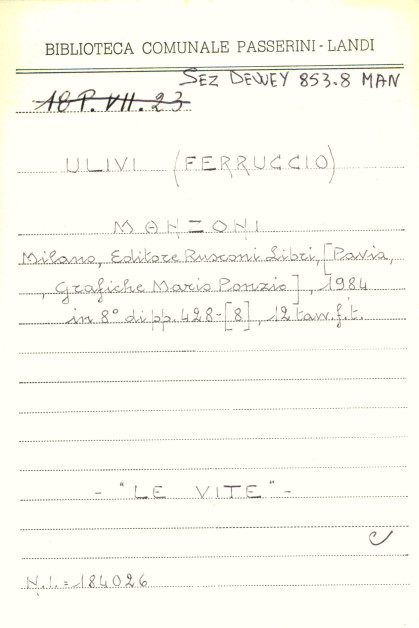 BIBLIOTECA COMUNALE PASSERINI-LANDI
SEZ DEWEY 853.8 MAN
18P.VII.23
ULIVI (FERRUCCIO)
MANZONI
Milano, Editore Rusconi Libri, [Pavia,
, Grafiche Mario Ponzio], 1984
in 8° di pp. 428-[8], 12 tav.f.t.
- "LE VITE" -
C
N.I.=184026